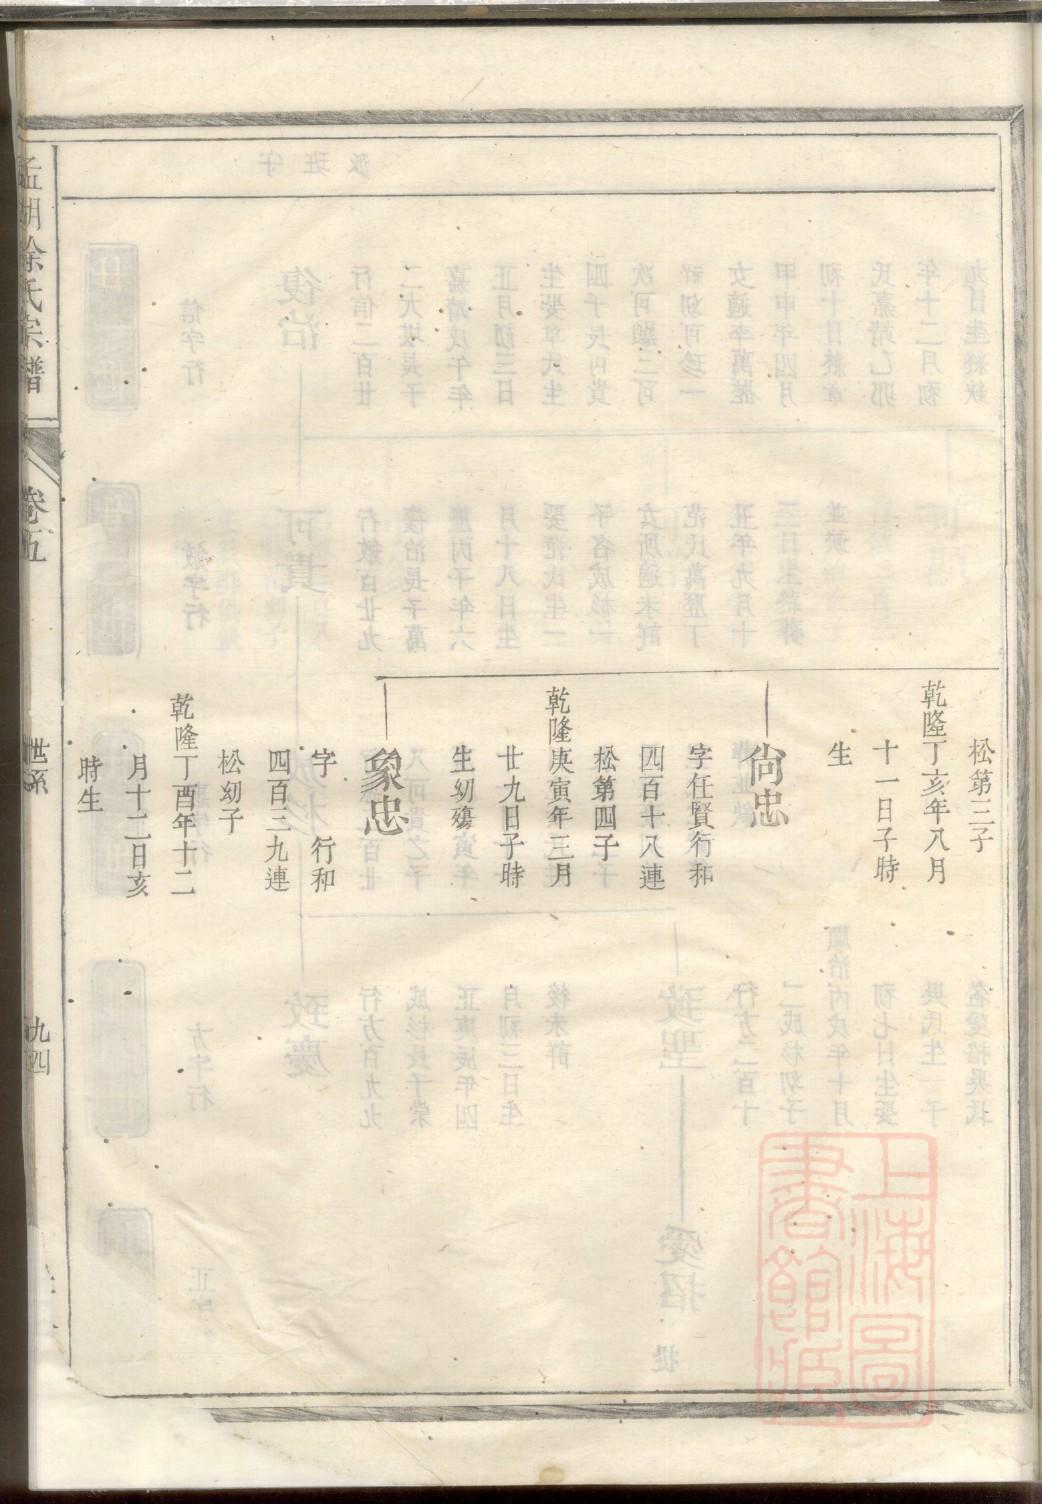 松第三子
乾隆丁亥年八月
十一日子時
生
尙忠
字任賢行和
四百十八連
松第四子
乾隆庚寅年三月
廿九日子時
生幼殤
象忠
字 行和
四百三九連
松幼子
乾隆丁酉年十二
月十二日亥
時生
孟湖徐氏宗譜
卷五
世系
九四
上海圖
書館藏